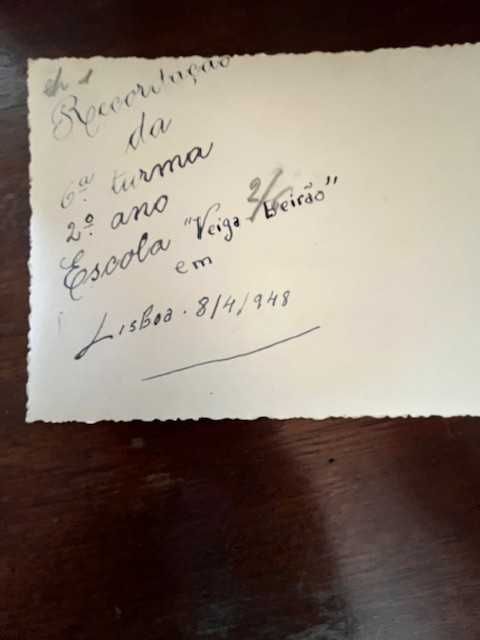 Recordação
da
6ª turma
2º ano
Escola "Veiga Beirão"
em
Lisboa. 8/4/948